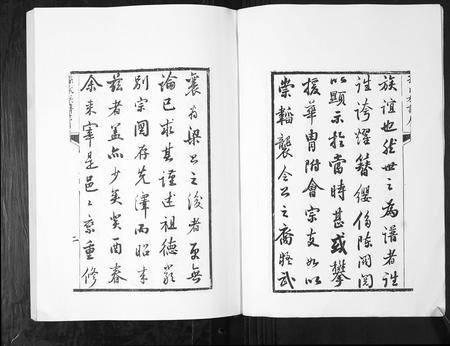 族誼也然世之為譜者往
往誇耀簪纓侈陳閥閱
以顯示於當時甚或攀
援華胄附會宗支如以
崇韜襲令公之裔將武
襄為梁公之後者更無
論已求其謹述祖德嚴
別宗圖存先澤而昭来
茲者盖亦少矣癸酉春
余来宰是邑邑余重修
二